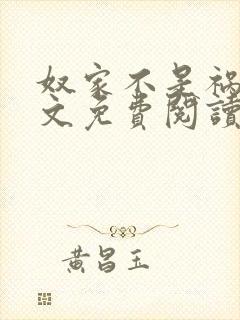 奴家不是祸
文免費閱讀
黄昌玉